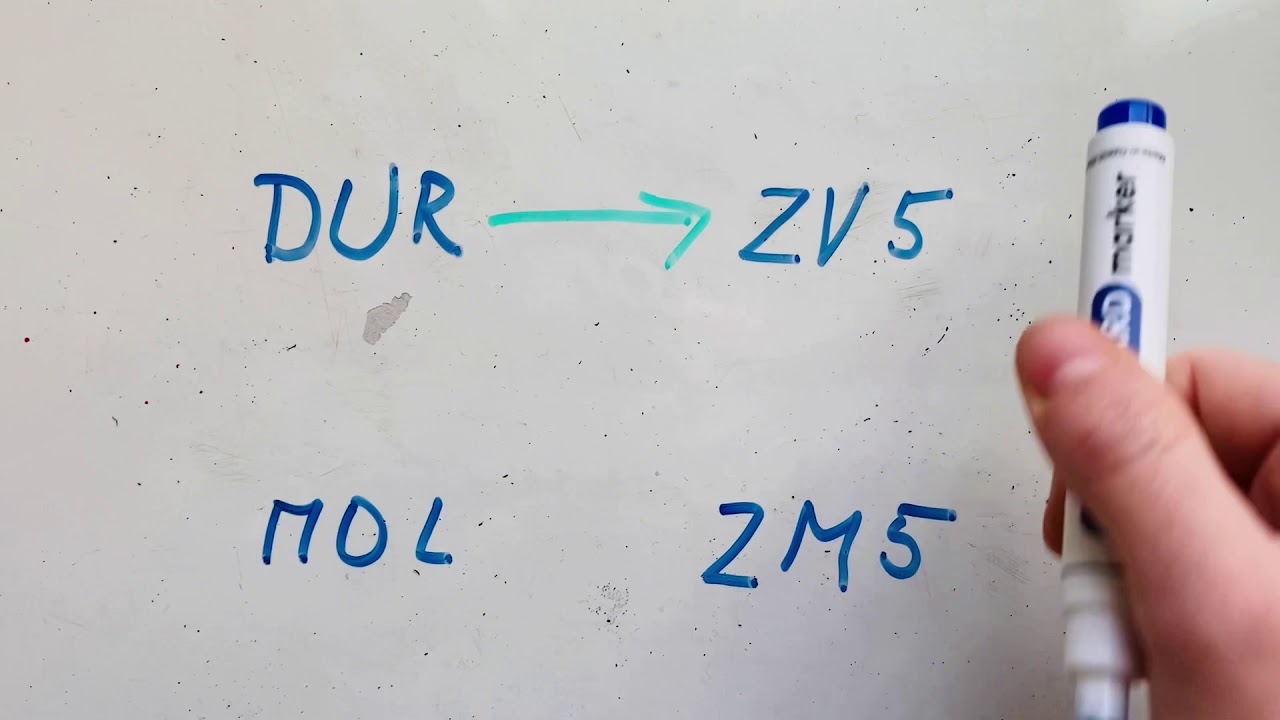 DUR → ZV5
MOL ZM5
marker